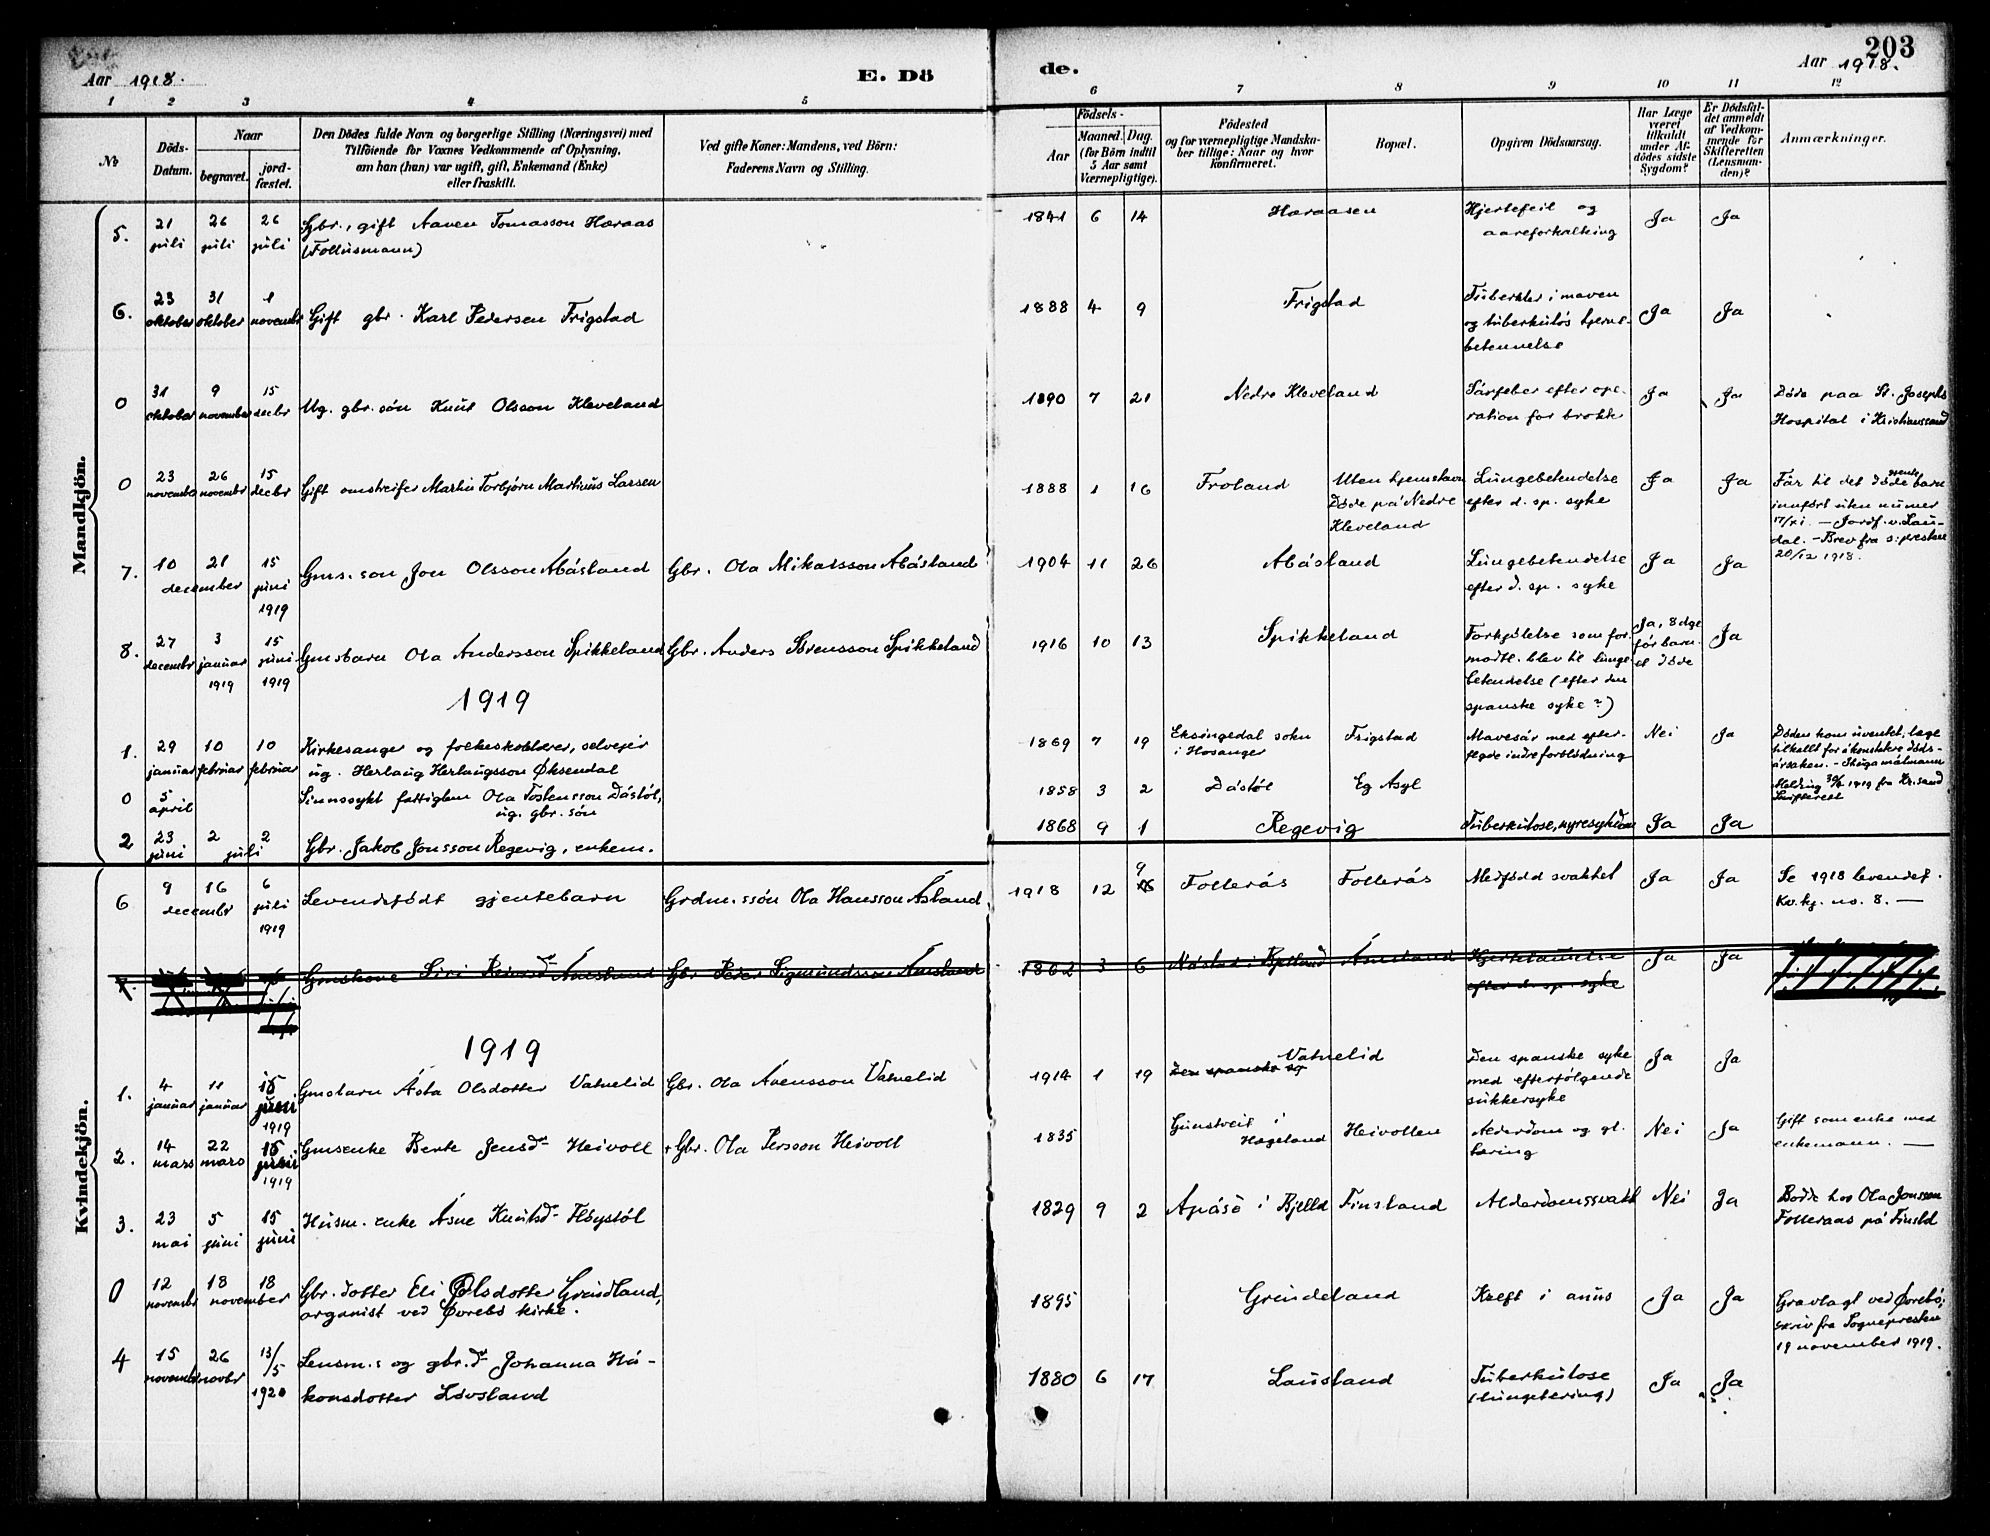 Aar 1918.
E. Dö
de.
203
Aar 1918.
1 2 3 4 5 6 7 8 9 10 11 12
No
Döds-Datum.
Naar
begravet.
jord-fæstet.
Den Dödes fulde Navn og borgerlige Stilling (Næringsvei) med
Tilföiende för Voxnes Vedkommende af Oplysning,
om han (hun) var ugift, gift, Enkemand (Enke)
eller fraskilt.
Ved gifte Koner: Mandens, ved Börn:
Faderens Navn og Stilling.
Födsels-
Aar
Maaned. Dag.
(for Börn indtil
5 Aar samt
Værnepligtige).
Födested
og for værnepligtige Mandska-
ber tillige: Naar og hvor
konfirmeret.
Bopæl.
Opgiven Dödsaarsag.
Har Læge
været
tilkaldt
under Af-
dödes sidste
Sygdom?
Er Dödsfal-
det anmeldt
af Vedkom-
mende for
Skifteretten
(Lensman-
den)?
Anmærkninger.
Mandkjön.
5. 21 juli 26 juli 26 juli Gbr., gift Aaven Tomasson Høraas
(Follusmann)
1841 6 14 Høraasen Hjertefeil og
aareforkalking Ja Ja
6. 23 oktober 31 oktober 1 novembr Gift gbr. Karl Pedersen Frigstad
1888 4 9 Frigstad Tuberkler i maven
og tuberkuløs hjerne-
betennelse Ja Ja
0 31 oktober 9 november 15 decbr Ug. gbr. søn Knut Olsson Kleveland
1890 7 21 Nedre Kleveland Sårfeber efter ope-
ration for brokk Ja Ja Døde paa St. Josephs
Hospital i Kristianssand
0 23 novembr 26 novembr 15 decbr Gift omstreifer Martin Torbjørn Martinus Larsen
1888 1 16 Froland Uten hjemstavn
Døde på Nedre
Kleveland
Lungebetendelse
efter d. sp. syke Ja Ja Får til det døde barn
innført uten numer
17/XI. — Jordf. v. Lau-
dal. — Brev fra s: presten
20/12 1918.
7. 10 21 december 15 juni 1919 Gms. søn Jon Olsson Abåsland Gbr. Ola Mikalsson Abåsland
1904 11 26 Abåsland Lungebetendelse
efter d. sp. syke Ja Ja
8. 27 decembr 3 januar 1919 15 juni 1919 Gmsbarn Ola Andersson Spikkeland Gbr. Anders Sørensson Spikkeland
1916 10 13 Spikkeland Forkjølelse som for-
modtl. blev til lunge-
betendelse (efter den
spanske syke?) Ja, 8 dge
før barn-
et døde Ja
1919
1. 29 januar 10 februar 10 februar Kirkesanger og folkeskolelærer, selveier
ug. Herlaug Herlaugsson Øksendal
1869 7 19 Eksingedal sokn
i Hosanger Frigstad Mavesår med efter-
flgde indre forblødning Nei Ja Døden kom uventet, læge
tilkallt for å konstatere døds-
årsaken.
0 5 april Sinnssykt fattiglem Ola Tostensson Dåstøl,
ug. gbr. søn
1858 3 2 Dåstøl Eg Asyl Melding 30/4 1919 fra Kr.sand
Skifterett
2 23 juni 2 2 juli Gbr. Jakob Jonsson Regevig, enkem.
1868 9 1 Regevig Tuberkulose, nyresykdom Ja Ja
Kvindekjön.
6 9 16 december 6 juli 1919 Levendefødt gjentebarn Grdm.ssøn Ola Hansson Åsland
1918 12 9 Follerås Follerås Medfødd svakhet Ja Ja Se 1918 levendef.
Kv.kj. no. 8. —
7. Gmskone Siri Gbr. Peder Sigmundsson Åmsland
1862 3 6 Åmsland Ja Ja
efter d. sp. syke
1919
1. 4 januar 11 januar 15 juni 1919 Gmsbarn Åsta Olsdotter Vatnelid Gbr. Ola Avensson Vatnelid
1914 1 19 Den spanske sy Vatnelid Den spanske syke
med efterfølgende
sukkersyke Ja Ja
2. 14 mars 22 mars 15 juni 1919 Gmsenke Berte Jensd. Heivoll + Gbr. Ola Persson Heivoll
1835 Gunstveit i
Hægeland Heivollen Alderdom og gl.
tæring Nei Ja Gift som enke med
enkemann. —
3. 23 mai 5 juni 15 juni Husm. enke Åsne Knutsd. Høystøl
1829 9 2 Apåsø i Bjelld Finsland Alderdomssvakh Nei Ja Bodde hos Ola Jonsson
Folleraas på Finsld
0 12 novembr 18 18 november Gbr. dotter Eli Olsdotter Greidland,
organist ved Øvrebø kirke.
1895 Greideland Kreft i anus Ja Ja Gravlagt ved Øvrebø;
skriv fra Sognepresten
19 november 1919.
4 15 novembr 26 novbr 13/5 1920 Lensm.s og gbr.d. Johanna Hå-
konsdotter Løvsland
1880 6 17 Lausland Tuberkulose
(lungetæring) Ja Ja